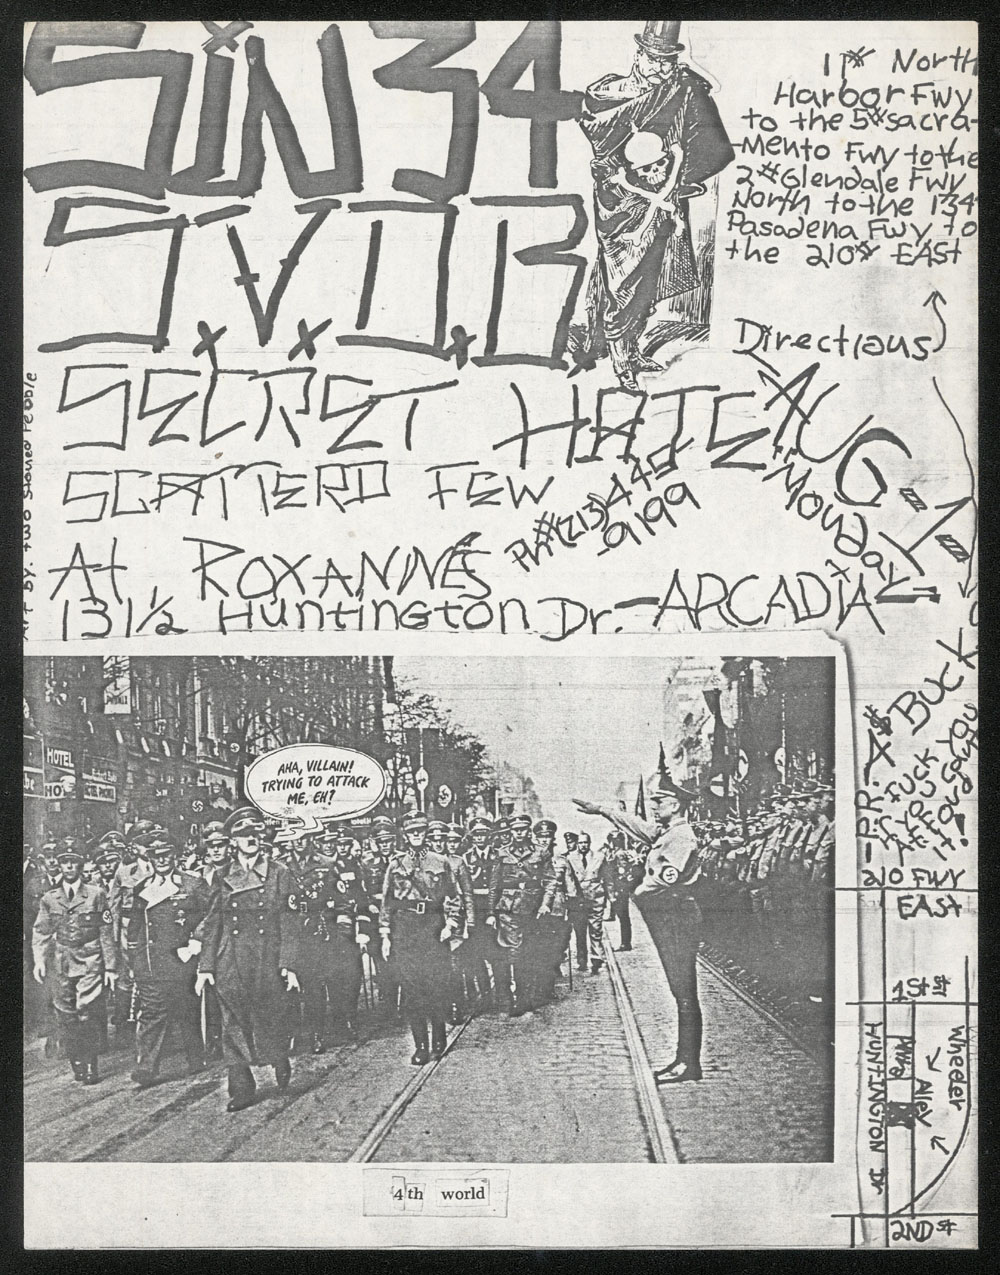 SiN 34
S.V.D.B.
SECRET HATE
SCATTERD FEW
At ROXANNES
131½ Huntington Dr.-ARCADIA
PH#(213)445
-9199
AUG-1-
Monday
11# North
Harbor Fwy
to the 5#sacra-
-mento Fwy to the
2#Glendale Fwy
North to the 134
Pasadena Fwy to
the 210# EAST
Directions
Art BY: two Stoned Pebble
A BUCK
FUCK
YOU
it!
210 FWY
EAST
1St St
HUNTINGTON Dr
Alley
Wheeler
2ND St
HOTEL
AHA, VILLAIN!
TRYING TO ATTACK
ME, EH?
4th world